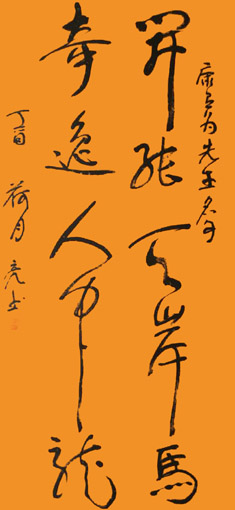 康有为先生名句
開張天岸馬
奇逸人中龍
丁酉荷月亮书